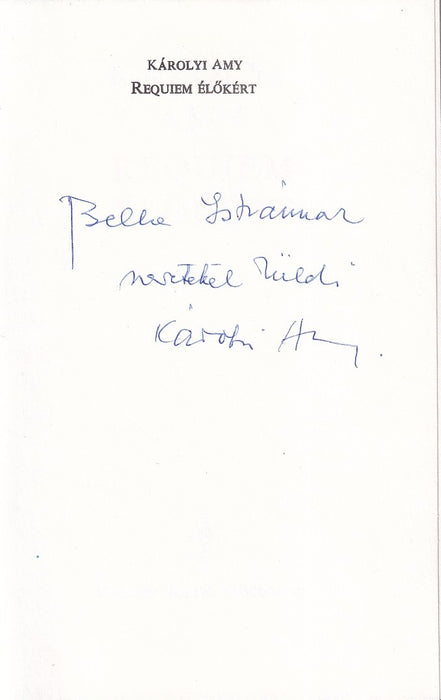 KÁROLYI AMY
REQUIEM ÉLŐKÉRT
Bella Istvánnak
szeretettel küldi
Károlyi Amy